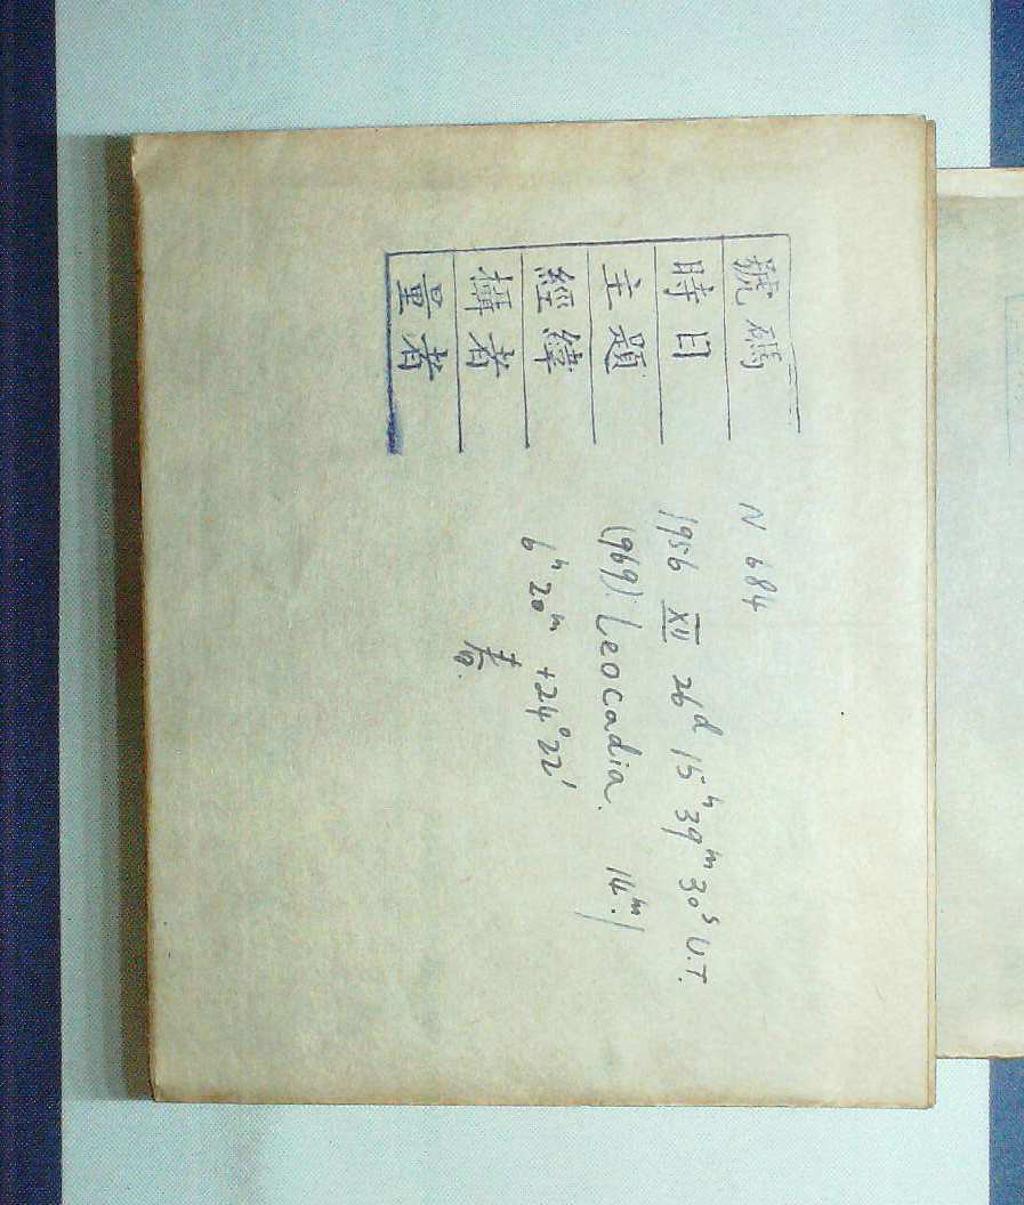 號碼 N 684
時日 1956 XII 26ᵈ 15ʰ 39ᵐ 30ˢ U.T.
主題 (969) Leocadia. 14ᵐ.1
經緯 6ʰ 20ᵐ +24° 22'
攝者
量者